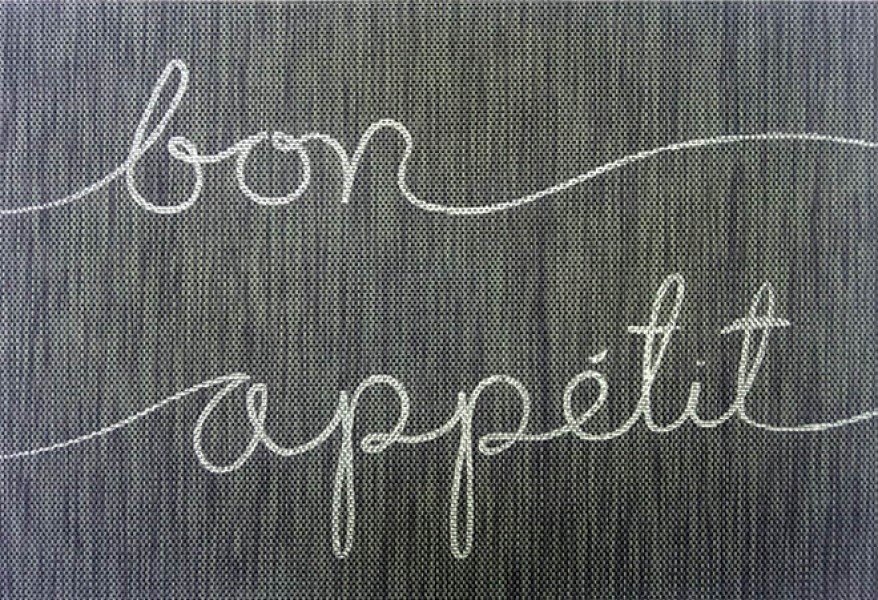 bon
appétit